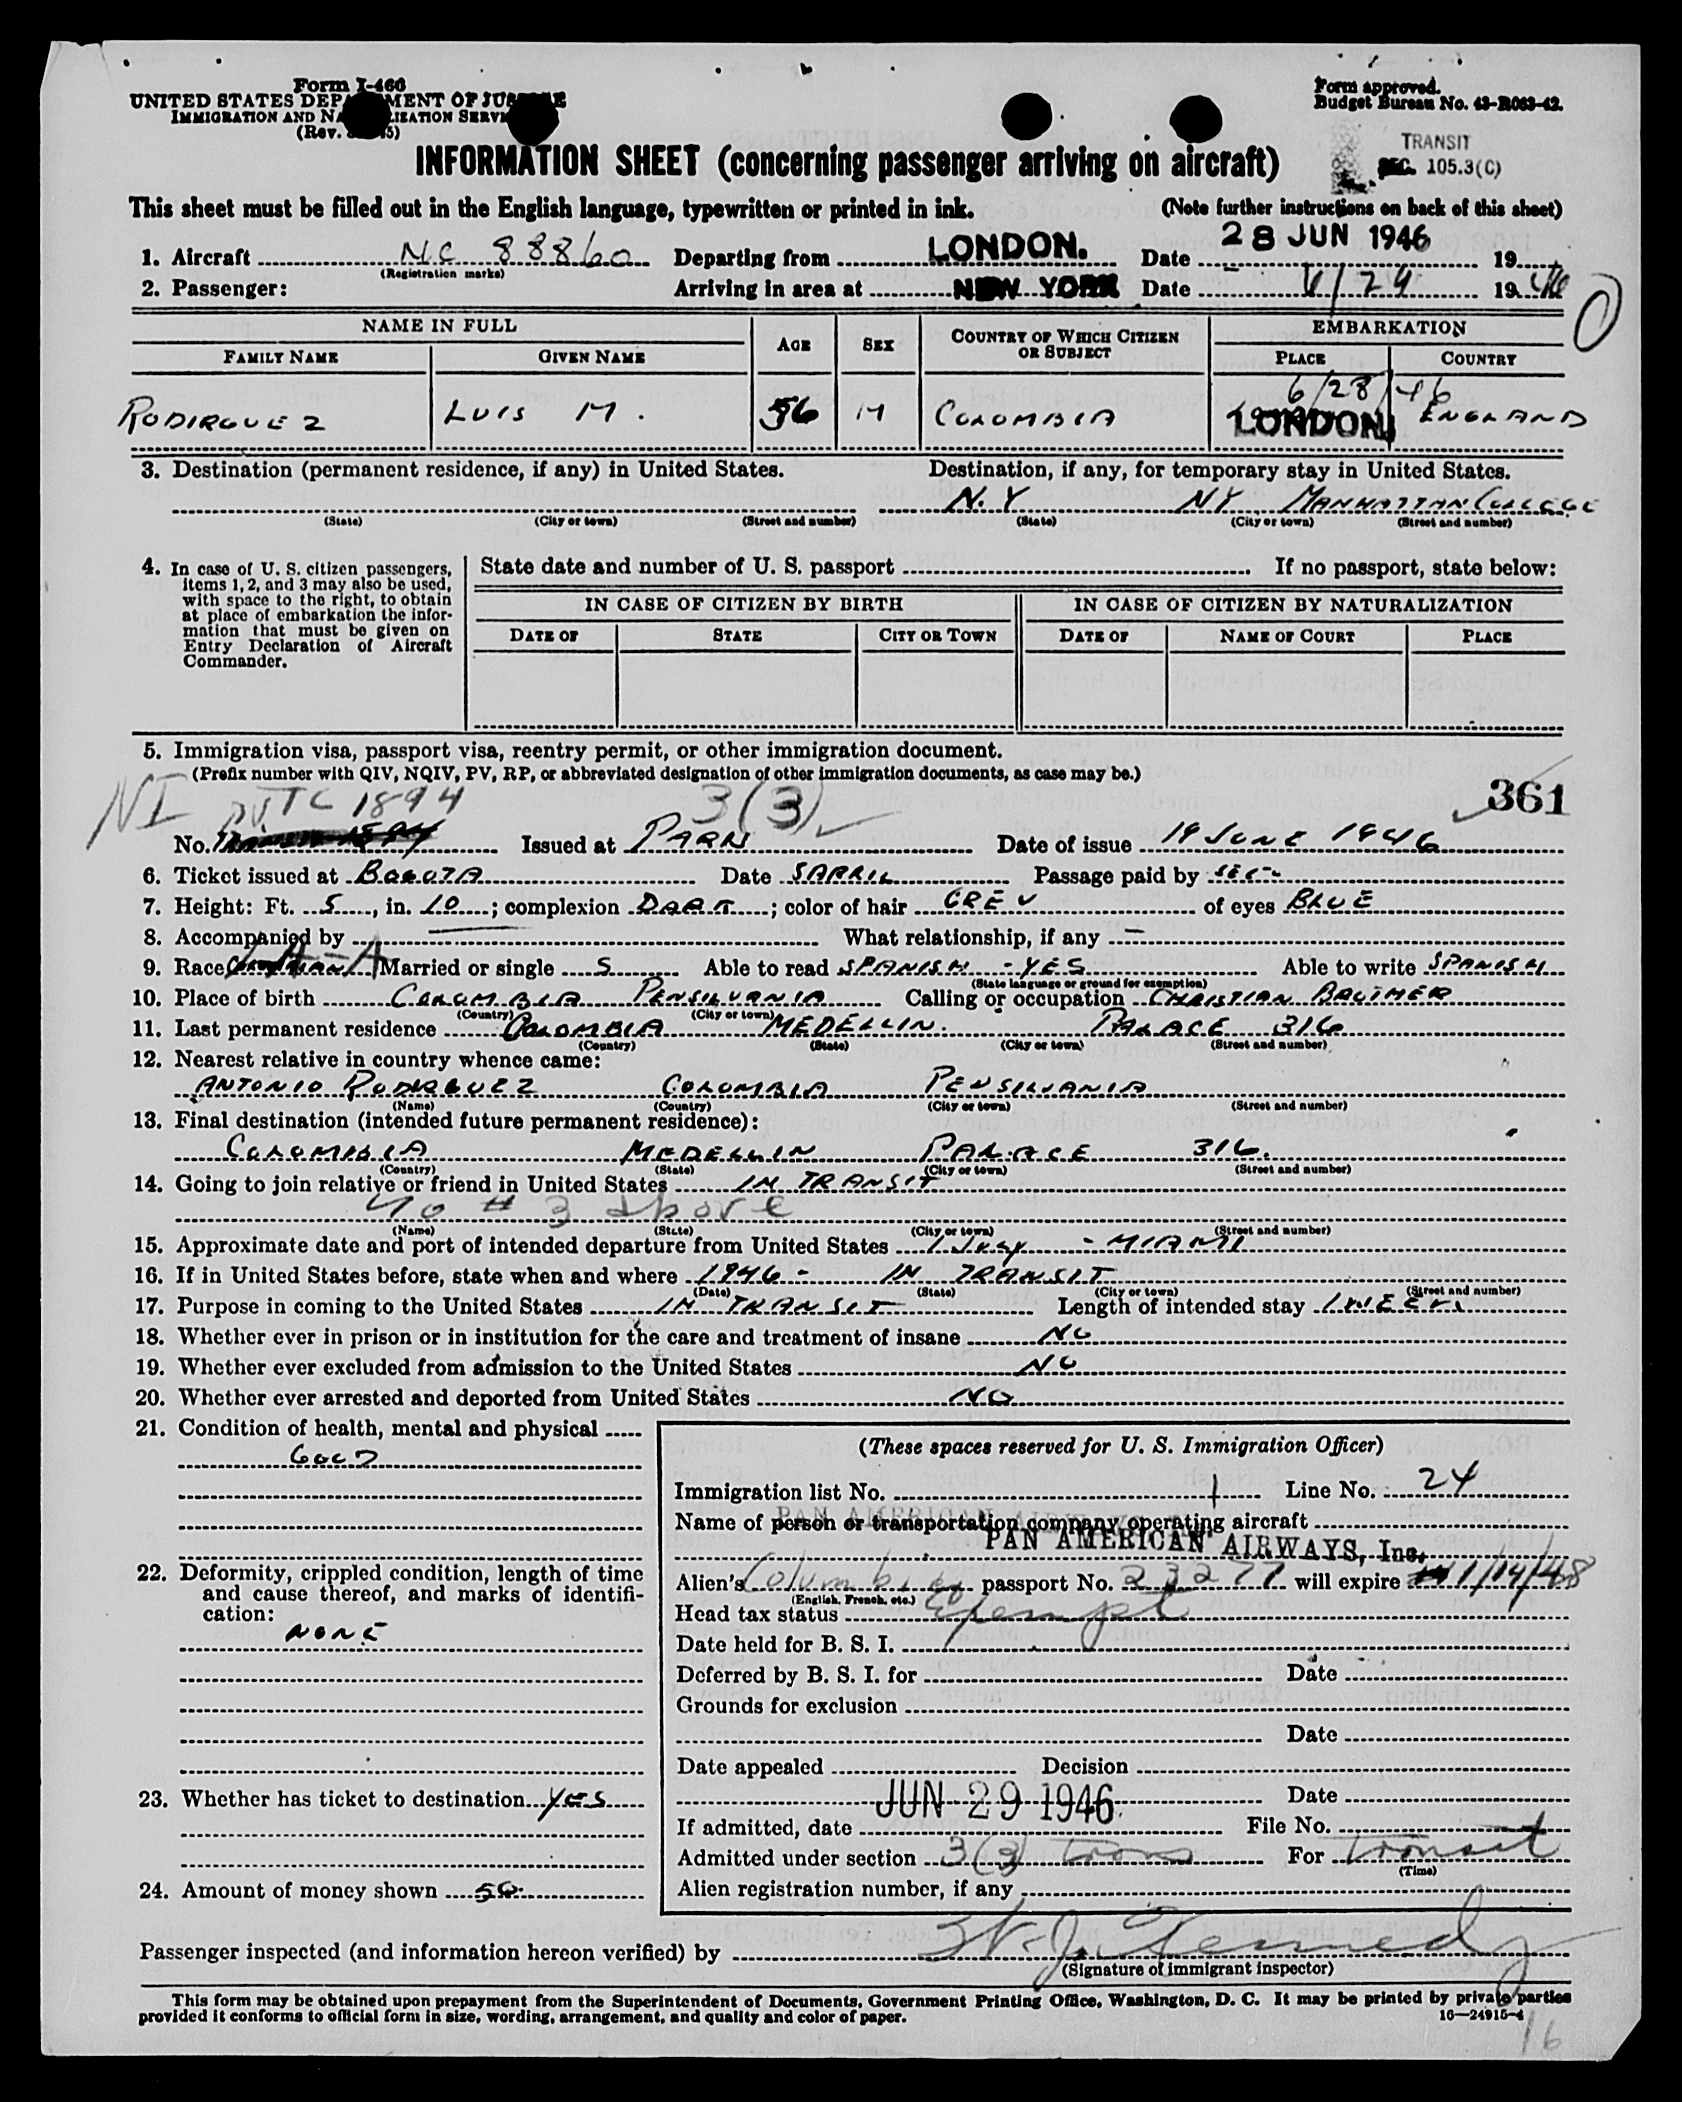 Form I-466
UNITED STATES DEPARTMENT OF JUSTICE
IMMIGRATION AND NATURALIZATION SERVICE
(Rev.
Form approved.
Budget Bureau No. 43-R083-42.
TRANSIT
SEC. 105.3(C)
INFORMATION SHEET (concerning passenger arriving on aircraft)
This sheet must be filled out in the English language, typewritten or printed in ink. (Note further instructions on back of this sheet)
1. Aircraft NC 88860 Departing from LONDON. Date 28 JUN 1946 19
(Registration marks)
2. Passenger: Arriving in area at NEW YORK Date 6/29 1946
NAME IN FULL AGE SEX COUNTRY OF WHICH CITIZEN OR SUBJECT EMBARKATION
FAMILY NAME GIVEN NAME PLACE COUNTRY
6/28/46
RODIRGUEZ LUIS M. 56 M COLOMBIA LONDON. ENGLAND
3. Destination (permanent residence, if any) in United States. Destination, if any, for temporary stay in United States.
N.Y NY MANHATTAN COLLEGE
(State) (City or town) (Street and number) (State) (City or town) (Street and number)
4. In case of U. S. citizen passengers, items 1, 2, and 3 may also be used, with space to the right, to obtain at place of embarkation the information that must be given on Entry Declaration of Aircraft Commander.
State date and number of U. S. passport If no passport, state below:
IN CASE OF CITIZEN BY BIRTH IN CASE OF CITIZEN BY NATURALIZATION
DATE OF STATE CITY OR TOWN DATE OF NAME OF COURT PLACE
5. Immigration visa, passport visa, reentry permit, or other immigration document.
(Prefix number with QIV, NQIV, PV, RP, or abbreviated designation of other immigration documents, as case may be.)
361
NI TC 1894 3(3)
No. Issued at Date of issue 19 JUNE 1946
6. Ticket issued at BOGOTA Date Passage paid by
7. Height: Ft. 5, in. 10; complexion DARK; color of hair GREY of eyes BLUE
8. Accompanied by What relationship, if any —
9. Race Married or single S Able to read SPANISH - YES Able to write SPANISH
(State language or ground for exemption)
10. Place of birth COLOMBIA PENSILVANIA Calling or occupation CHRISTIAN BROTHER
(Country) (City or town)
11. Last permanent residence COLOMBIA MEDELLIN. PALACE 316
(Country) (State) (City or town) (Street and number)
12. Nearest relative in country whence came:
ANTONIO RODIRGUEZ COLOMBIA PENSILVANIA
(Name) (Country) (City or town) (Street and number)
13. Final destination (intended future permanent residence):
COLOMBIA MEDELLIN PALACE 316.
(Country) (State) (City or town) (Street and number)
14. Going to join relative or friend in United States IN TRANSIT
# 3 above
(Name) (State) (City or town) (Street and number)
15. Approximate date and port of intended departure from United States 1 July - MIAMI
16. If in United States before, state when and where 1946 - IN TRANSIT
(Date) (State) (City or town) (Street and number)
17. Purpose in coming to the United States IN TRANSIT Length of intended stay 1 WEEK
18. Whether ever in prison or in institution for the care and treatment of insane NO
19. Whether ever excluded from admission to the United States NO
20. Whether ever arrested and deported from United States NO
21. Condition of health, mental and physical
GOOD
22. Deformity, crippled condition, length of time and cause thereof, and marks of identification:
NONE
23. Whether has ticket to destination YES
24. Amount of money shown 50
(These spaces reserved for U. S. Immigration Officer)
Immigration list No. 1 Line No. 24
Name of person or transportation company operating aircraft
PAN AMERICAN AIRWAYS, Inc.
Alien's Columbian passport No. 23277 will expire 1/14/48
(English, French, etc.)
Head tax status Exempt
Date held for B. S. I.
Deferred by B. S. I. for Date
Grounds for exclusion
Date
Date appealed Decision
JUN 29 1946 Date
If admitted, date File No.
Admitted under section 3(3) trans For Transit
(Time)
Alien registration number, if any
Passenger inspected (and information hereon verified) by
(Signature of immigrant inspector)
This form may be obtained upon prepayment from the Superintendent of Documents, Government Printing Office, Washington, D. C. It may be printed by private parties
provided it conforms to official form in size, wording, arrangement, and quality and color of paper. 16—24915-4
16